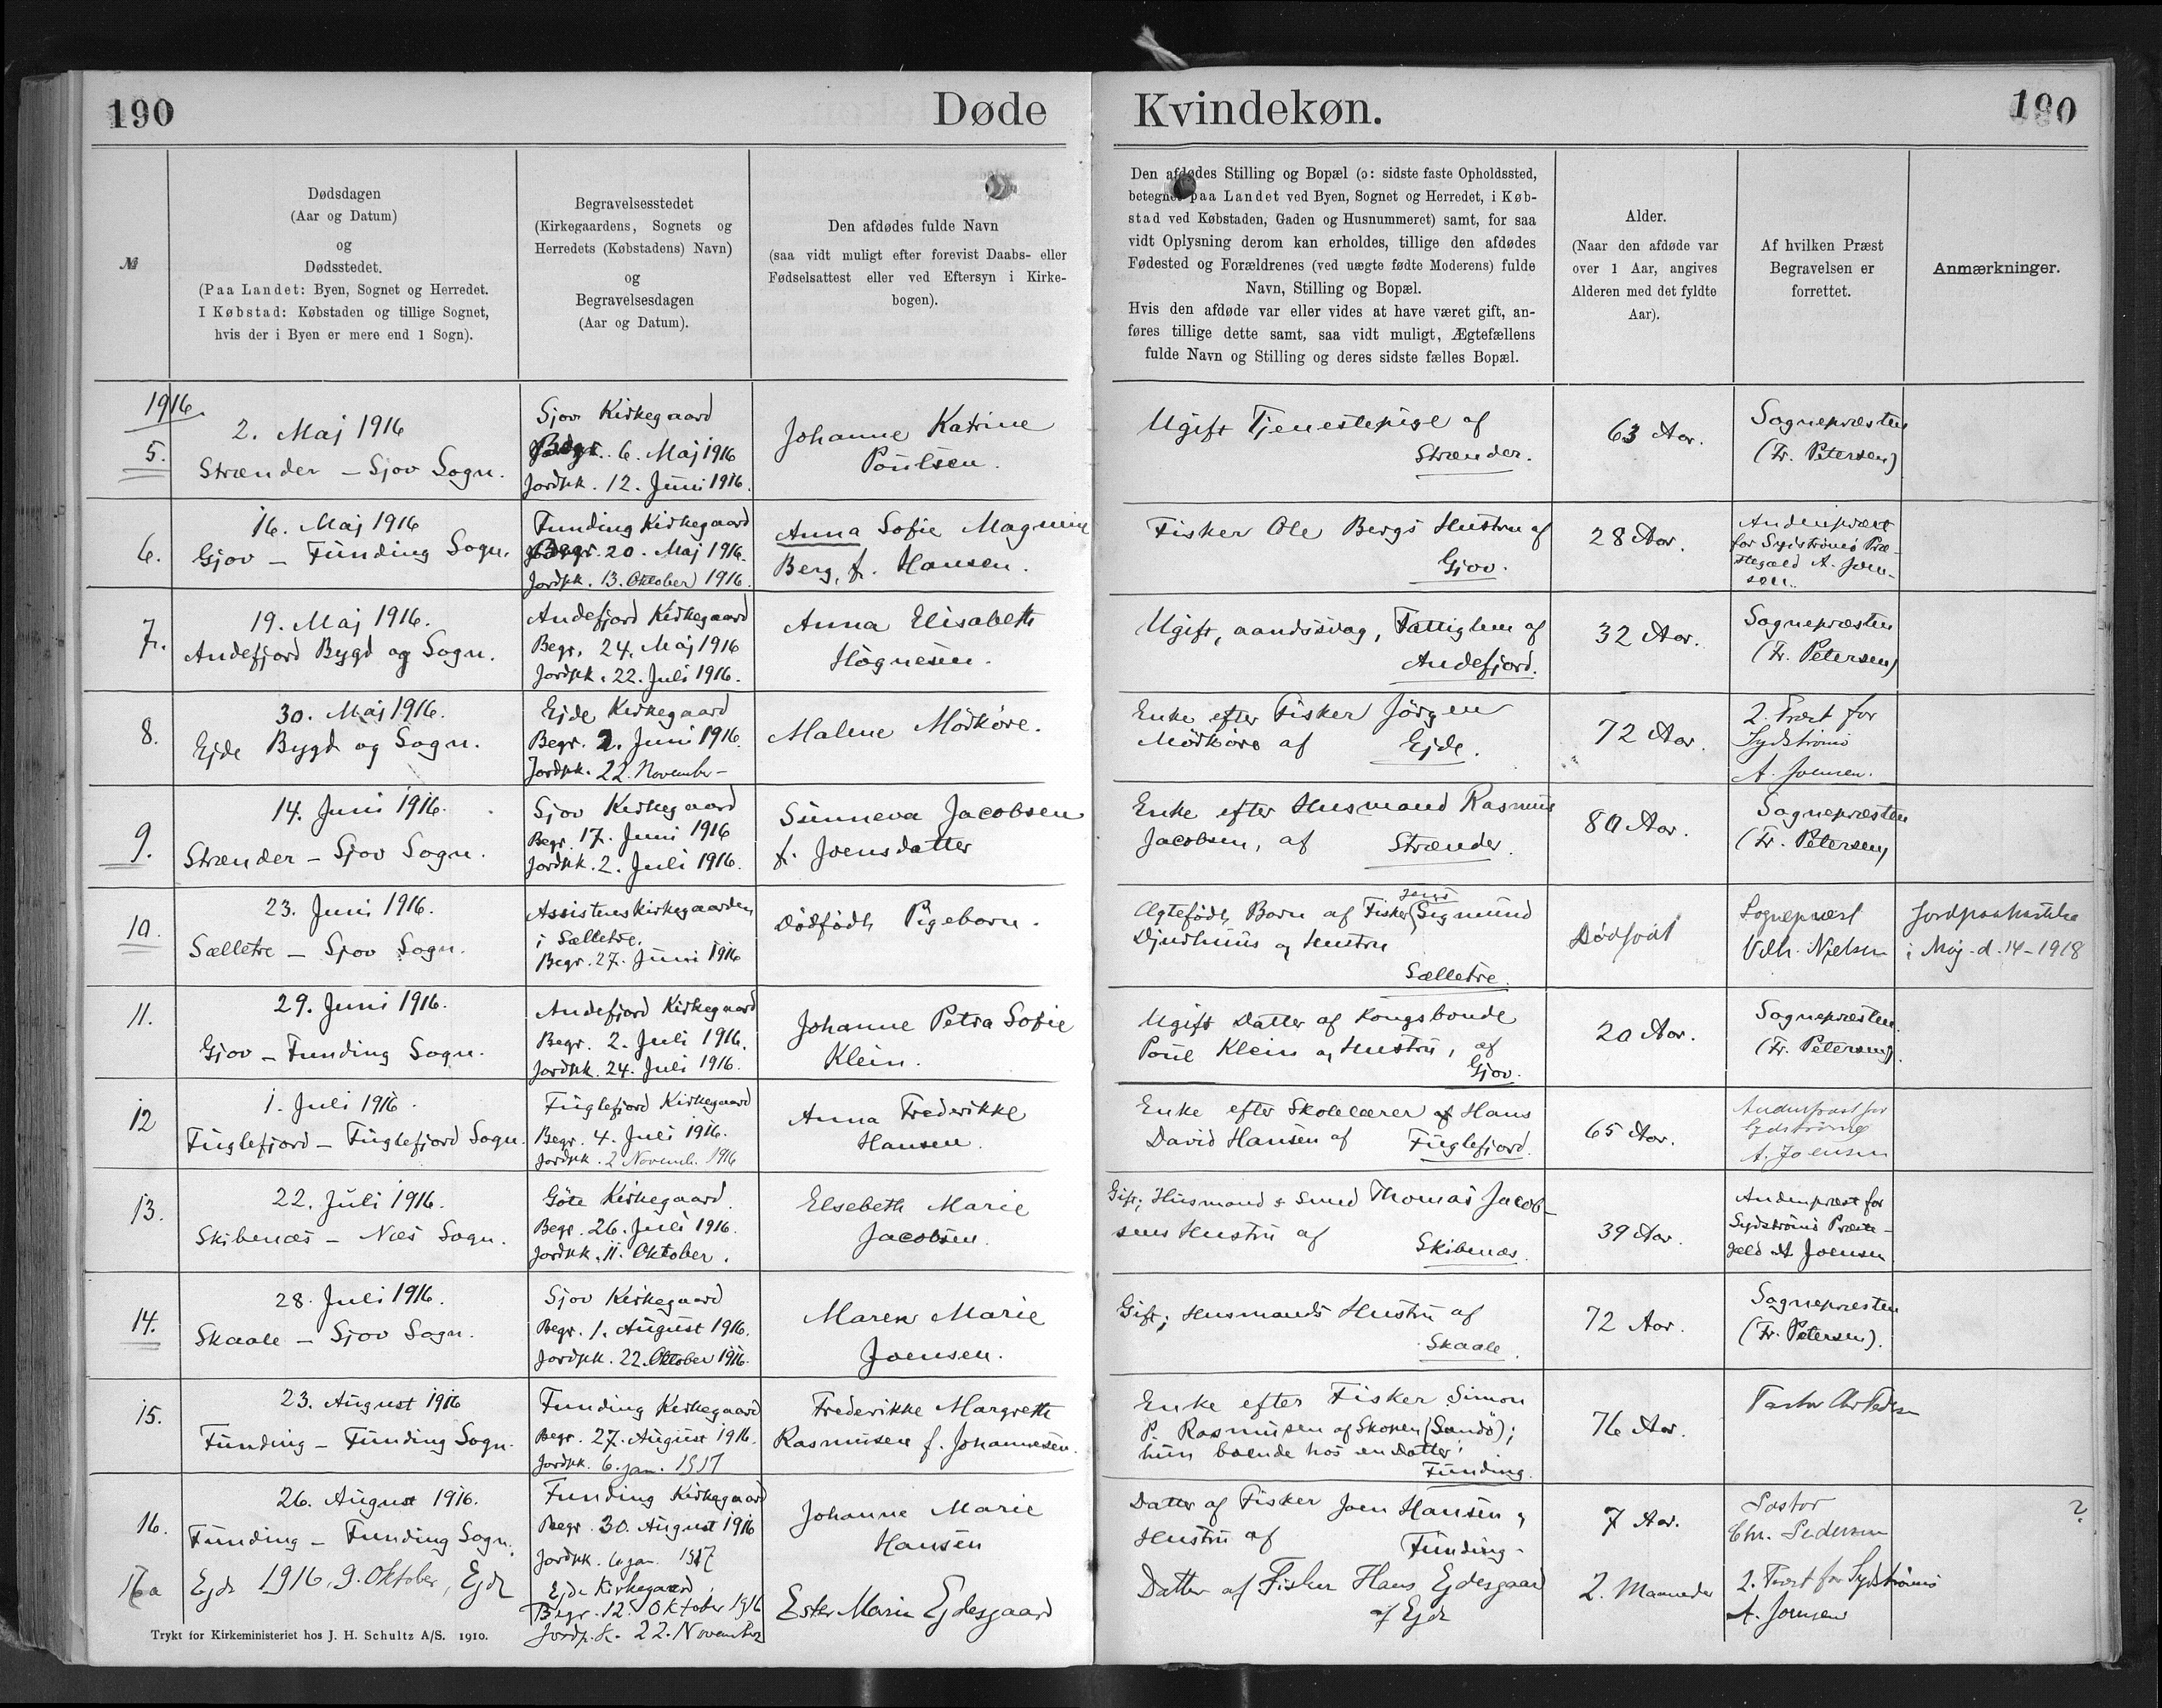 190
Døde
Kvindekøn.
190
№
Dødsdagen
(Aar og Datum)
og
Dødsstedet.
(Paa Landet: Byen, Sognet og Herredet.
I Købstad: Købstaden og tillige Sognet,
hvis der i Byen er mere end 1 Sogn).
Begravelsesstedet
(Kirkegaardens, Sognets og
Herredets (Købstadens) Navn)
og
Begravelsesdagen
(Aar og Datum).
Den afdødes fulde Navn
(saa vidt muligt efter forevist Daabs- eller
Fødselsattest eller ved Eftersyn i Kirke-
bogen).
Den afdødes Stilling og Bopæl (ɔ: sidste faste Opholdssted,
betegnet paa Landet ved Byen, Sognet og Herredet, i Køb-
stad ved Købstaden, Gaden og Husnummeret) samt, for saa
vidt Oplysning derom kan erholdes, tillige den afdødes
Fødested og Forældrenes (ved uægte fødte Moderens) fulde
Navn, Stilling og Bopæl.
Hvis den afdøde var eller vides at have været gift, an-
føres tillige dette samt, saa vidt muligt, Ægtefællens
fulde Navn og Stilling og deres sidste fælles Bopæl.
Alder.
(Naar den afdøde var
over 1 Aar, angives
Alderen med det fyldte
Aar).
Af hvilken Præst
Begravelsen er
forrettet.
Anmærkninger.
1916.
5.
2. Maj 1916
Strænder – Sjov Sogn.
Sjov Kirkegaard
Begr. 6. Maj 1916
Jordpk. 12. Juni 1916.
Johanne Katrine
Poulsen.
Ugift Tjenestepige af
Strænder.
63 Aar.
Sognepræsten
(Fr. Petersen)
6.
16. Maj 1916
Gjov – Funding Sogn.
Funding Kirkegaard
Begr. 20. Maj 1916.
Jordpk. 13. Oktober 1916.
Anna Sofie Magnine
Berg, f. Hansen.
Fisker Ole Bergs Hustru af
Gjov.
28 Aar.
Andenpræst
for Sydstrømø Præ-
stegæld A. Joen-
sen.
7.
19. Maj 1916.
Andefjord Bygd og Sogn.
Andefjord Kirkegaard
Begr. 24. Maj 1916
Jordpk. 22. Juli 1916.
Anna Elisabeth
Högnesen.
Ugift, aandssvag, Fattiglem af
Andefjord.
32 Aar.
Sognepræsten
(Fr. Petersen)
8.
30. Maj 1916.
Ejde Bygd og Sogn.
Ejde Kirkegaard
Begr. 2. Juni 1916.
Jordpk. 22. November –
Malene Mörköre.
Enke efter Fisker Jörgen
Mörköre af Ejde.
72 Aar.
2. Præst for
Sydstrømø
A. Joensen.
9.
14. Juni 1916.
Strænder – Sjov Sogn.
Sjov Kirkegaard
Begr. 17. Juni 1916
Jordpk. 2. Juli 1916.
Sunneva Jacobsen
f. Joensdatter
Enke efter Husmand Rasmus
Jacobsen, af Strænder.
80 Aar.
Sognepræsten
(Fr. Petersen)
10.
23. Juni 1916.
Sælletre – Sjov Sogn.
Assistenskirkegaarden
i Sælletre.
Begr. 27. Juni 1916
Dödfödt Pigebarn.
Ægtefödt Barn af Fisker Jens Sigmund
Djurhuus og Hustru
Sælletre.
Dødfødt
Sognepræst
Vilh. Nielsen
Jordpaakastelse
i Maj d. 14 – 1918
11.
29. Juni 1916.
Gjov – Funding Sogn.
Andefjord Kirkegaard
Begr. 2. Juli 1916.
Jordpk. 24. Juli 1916.
Johanne Petra Sofie
Klein.
Ugift Datter af Kongsbonde
Poul Klein og Hustru, af
Gjov.
20 Aar.
Sognepræsten.
(Fr. Petersen).
12
1. Juli 1916.
Fuglefjord – Fuglefjord Sogn.
Fuglefjord Kirkegaard
Begr. 4. Juli 1916.
Jordpk. 2 Novemb. 1916
Anna Frederikke
Hansen.
Enke efter Skolelærer af Hans
David Hansen af Fuglefjord.
65 Aar.
Andenpræst for
Sydstrømø
A. Joensen
13.
22. Juli 1916.
Skibenæs – Næs Sogn.
Göte Kirkegaard.
Begr. 26. Juli 1916.
Jordpk. 11. Oktober.
Elsebeth Marie
Jacobsen.
Gift; Husmand & Smed Thomas Jacob-
sens Hustru af
Skibenæs.
39 Aar.
Andenpræst for
Sydstrømø Præste-
gæld A. Joensen
14.
28. Juli 1916.
Skaale – Sjov Sogn.
Sjov Kirkegaard
Begr. 1. August 1916.
Jordpk. 22. Oktober 1916.
Maren Marie
Joensen.
Gift; Husmands Hustru af
Skaale.
72 Aar.
Sognepræsten
(Fr. Petersen).
15.
23. August 1916
Funding – Funding Sogn.
Funding Kirkegaard
Begr. 27. August 1916.
Jordpk. 6. jan. 1917
Frederikke Margrethe
Rasmussen f. Johannesen.
Enke efter Fisker Simon
P. Rasmussen af Skopen (Sandö);
hun boende hos en Datter i
Funding.
76 Aar.
Pastor Chr Pedersen
16.
26. August 1916.
Funding – Funding Sogn.
Funding Kirkegaard
Begr. 30. August 1916
Jordpk. 6 jan. 1917
Johanne Marie
Hansen
Datter af Fisker Joen Hansen og
Hustru af Funding.
7 Aar.
Pastor
Chr. Pedersen
?
16a
Ejde 1916, 9. Oktober, Ejde
Ejde Kirkegaard
Begr. 12. Oktober 1916
Jordp.k. 22. November
Ester Marie Ejdesgaard
Datter af Fisker Hans Ejdesgaard
af Ejde
2. Maaneder
2. Præst for Sydstrømø
A. Joensen
Trykt for Kirkeministeriet hos J. H. Schultz A/S. 1910.